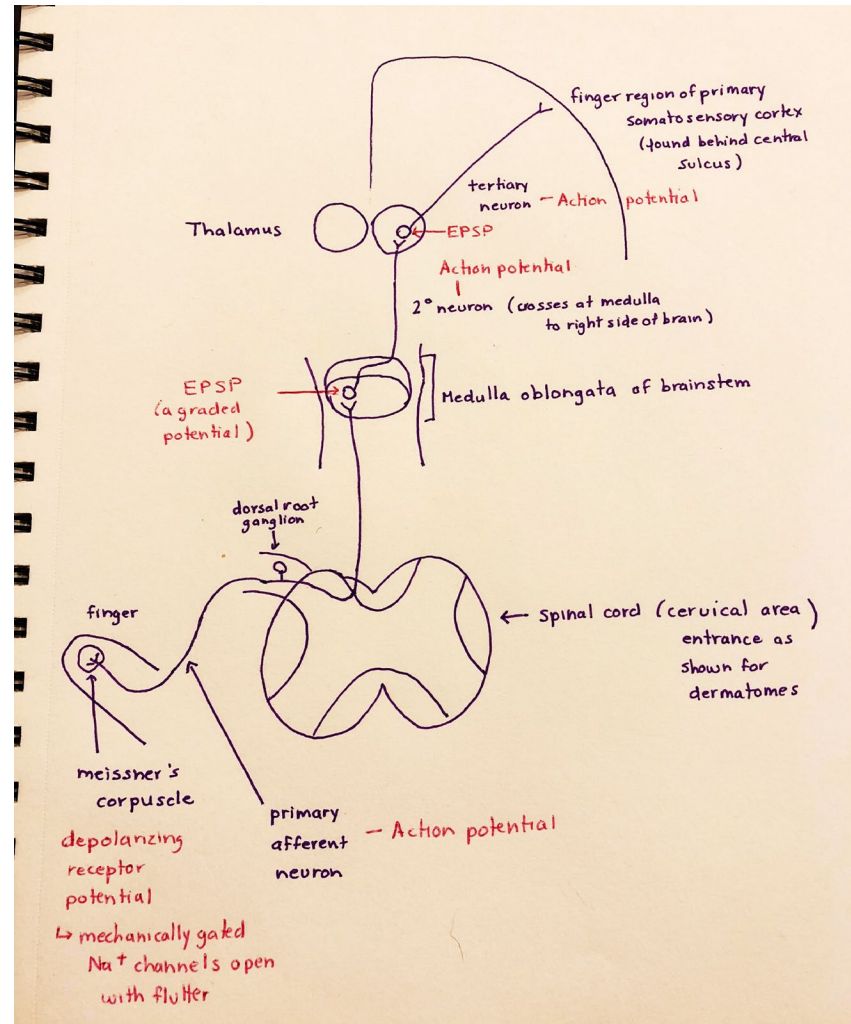 finger region of primary
somatosensory cortex
(found behind central
sulcus)
tertiary
neuron - Action potential
Thalamus
EPSP
Action potential
2° neuron (crosses at medulla
to right side of brain)
EPSP
(a graded
potential)
Medulla oblongata of brainstem
dorsal root
ganglion
finger
Spinal cord (cervical area)
entrance as
shown for
dermatomes
meissner's
corpuscle
primary
afferent
neuron
- Action potential
depolarizing
receptor
potential
↳ mechanically gated
Na+ channels open
with flutter